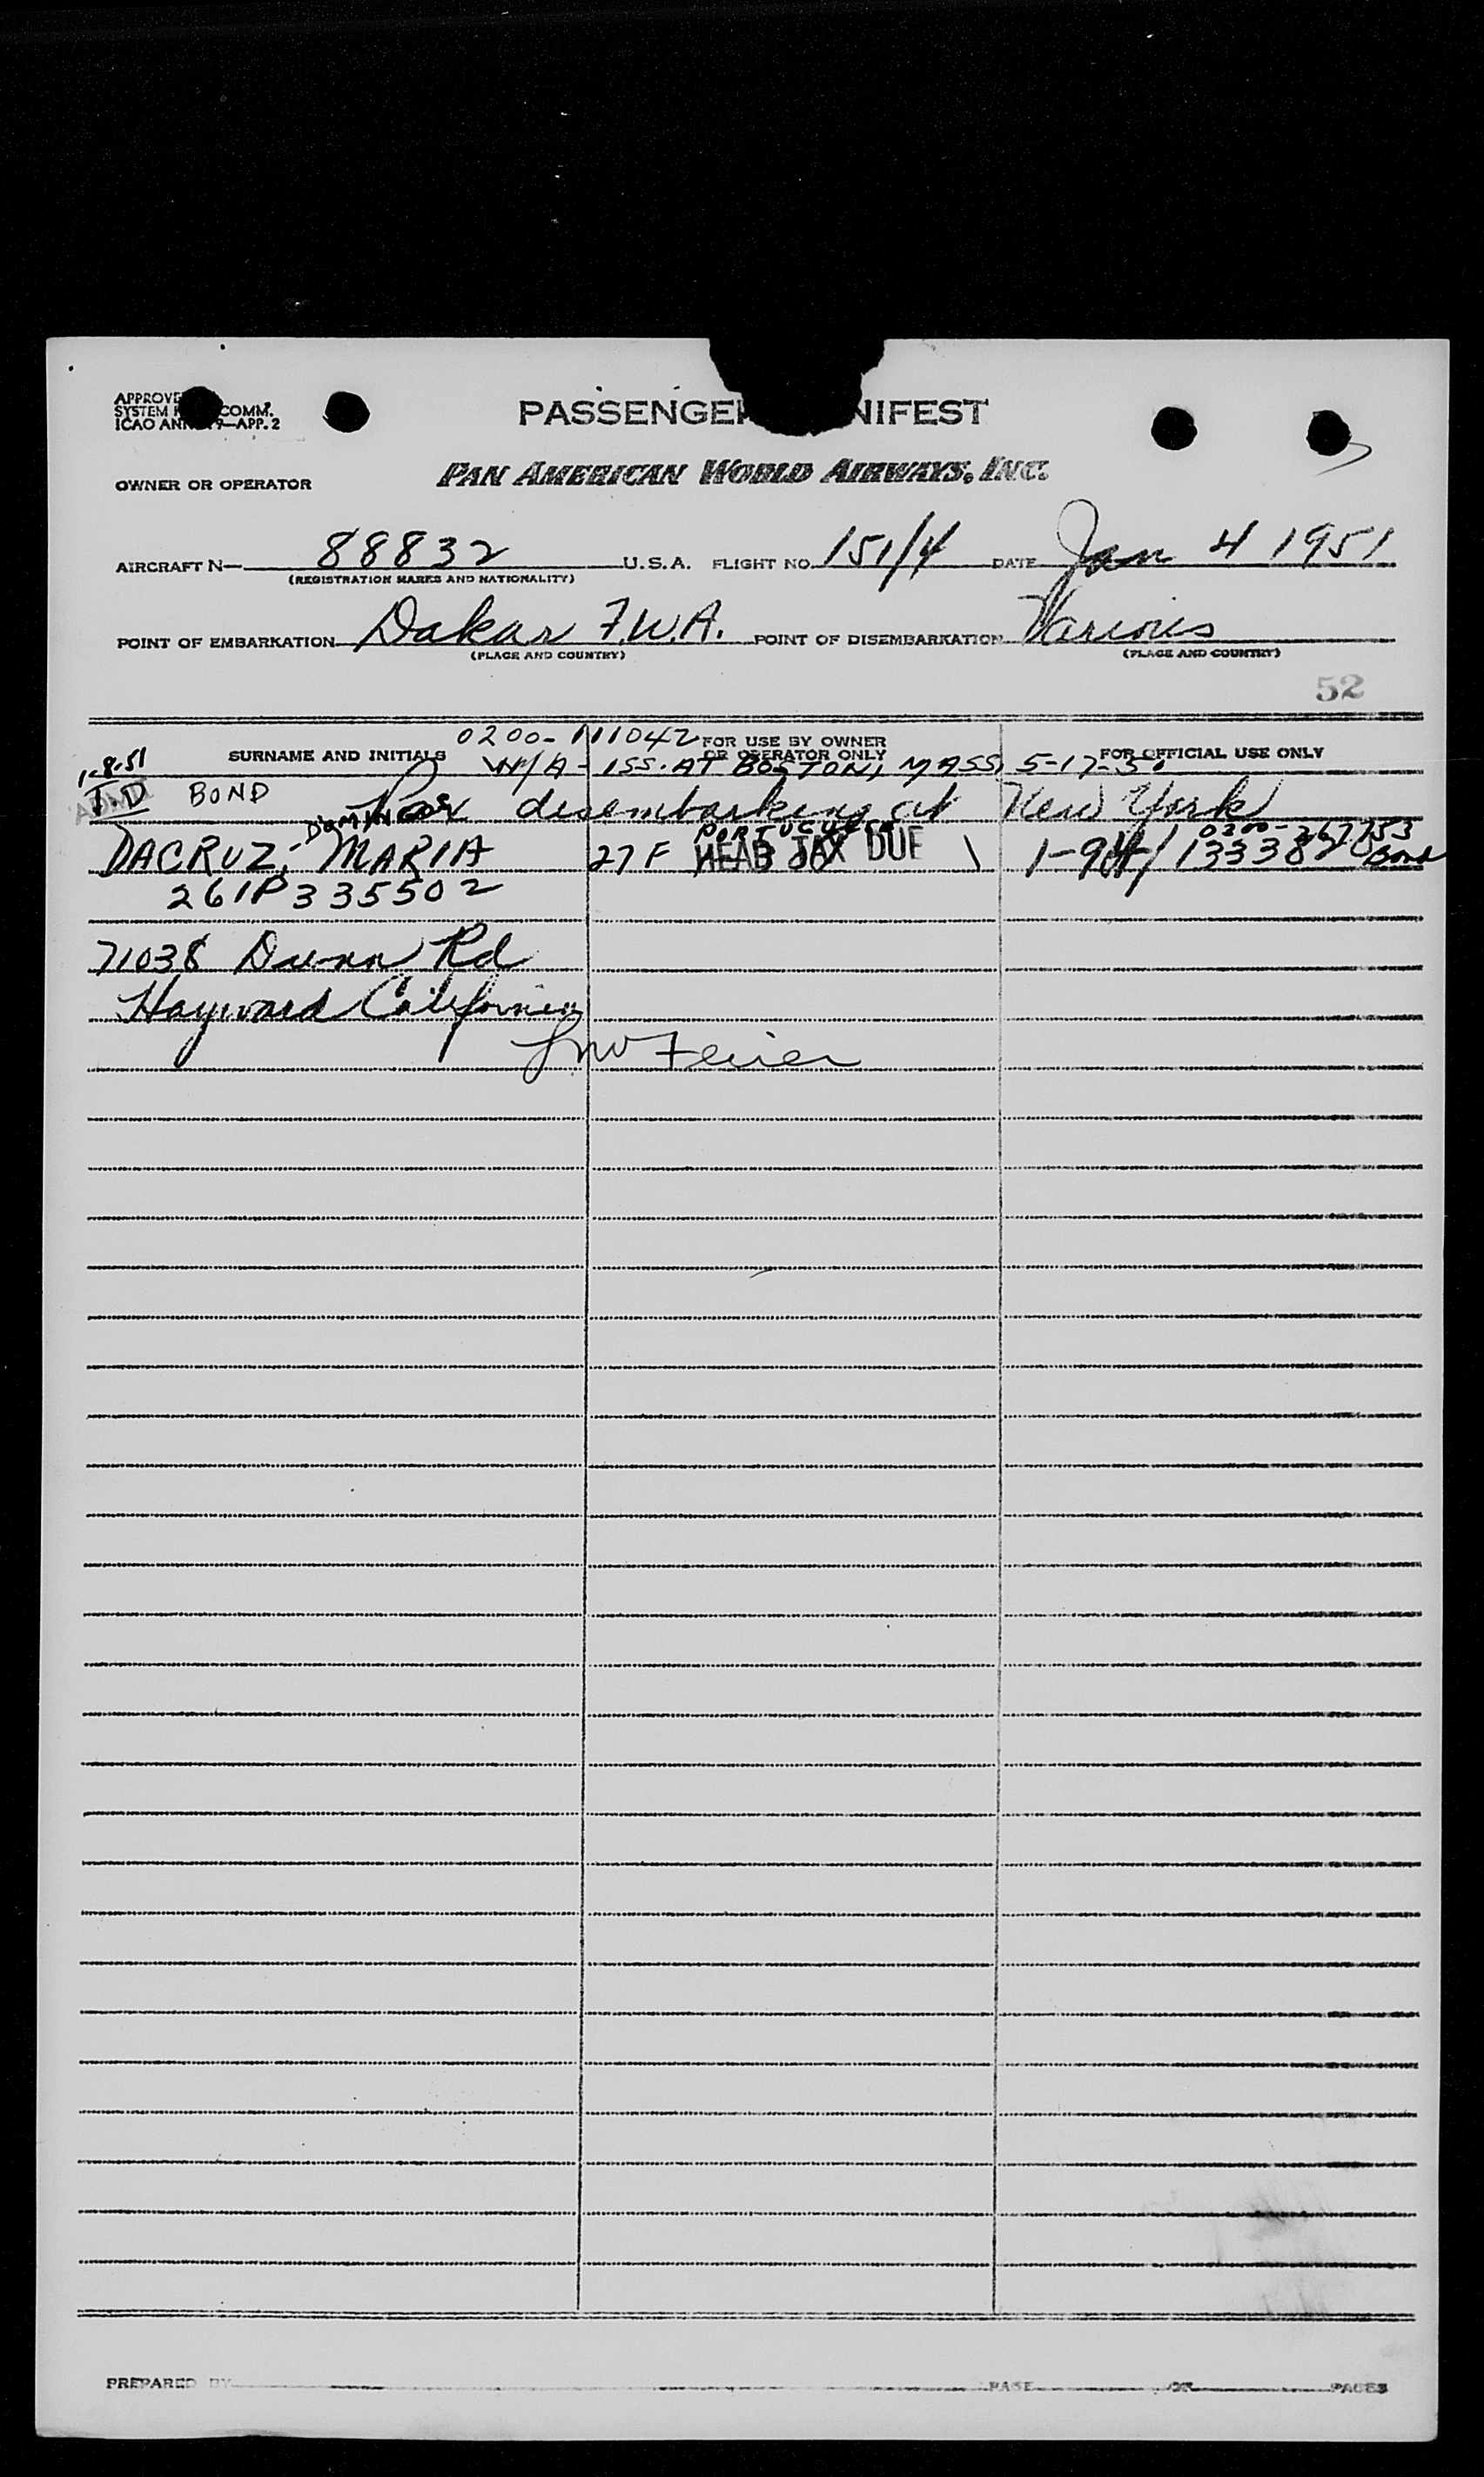 APPROVE
SYSTEM COMM.
ICAO ANN 9—APP. 2
PASSENGER NIFEST
OWNER OR OPERATOR
PAN AMERICAN WORLD AIRWAYS, INC.
AIRCRAFT N— 88832 U.S.A. FLIGHT NO. 151/4 DATE Jan 4 1951
(REGISTRATION MARKS AND NATIONALITY)
POINT OF EMBARKATION Dakar F.W.A. POINT OF DISEMBARKATION Various
(PLACE AND COUNTRY) (PLACE AND COUNTRY)
52
0200-111042 FOR USE BY OWNER
SURNAME AND INITIALS OR OPERATOR ONLY FOR OFFICIAL USE ONLY
1-8-51 W/A - ISS. AT BOSTON, MASS, 5-17-50
T.D BOND Pax disembarking at New York
DOMINGOS PORTUGUESE 0300-267753
DACRUZ, MARIA 27 F HEAD TAX DUE 1 Bond
261P335502
71038 Dunn Rd
Hayward California
PREPARED BY PAGE OF PAGES